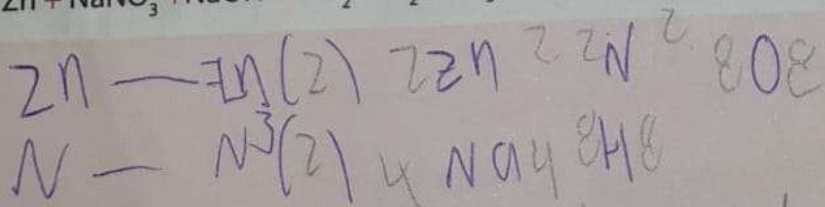 Zn + NaNO₃
Zn — Zn(2) 2 Zn 2 2 N 2 8 O 8
N — N³(2) 4 Na 4 8 H 8